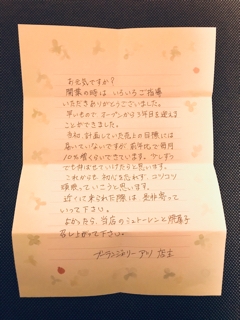 お元気ですか？
開業の時は いろいろご指導
いただきありがとうございました。
早いもので オープンから3年目を迎える
ことができました。
当初 計画していた売上の目標には
届いていないですが 前年比で毎月
10%増くらいできています。少しずつ
でも伸ばせていけたらと思います。
これからも 初心を忘れず、コツコツ
頑張っていこうと思います。
近くに来られた際は 是非寄って
いって下さい。
よかったら、当店のシュトーレンと焼菓子
召し上がって下さい。
ブーランジェリー アツ 店主